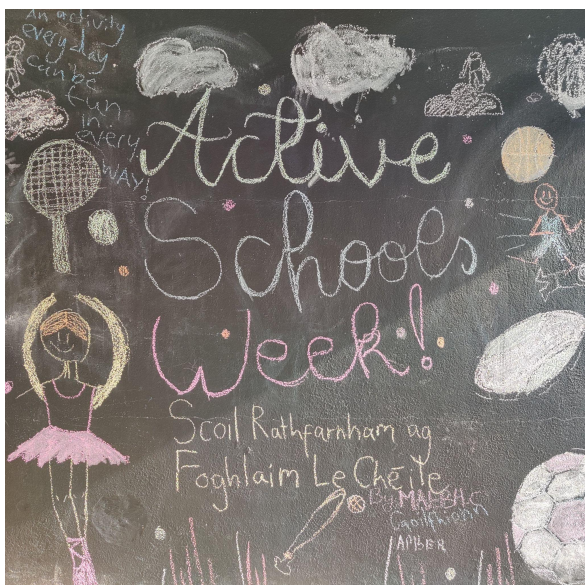 An activity
every day
can be
fun
in
every
WAY!
Active
Schools
Week!
Scoil Rathfarnham ag
Foghlaim Le Chéile
By: MAEBH.C
Caoilfhionn
AMBER